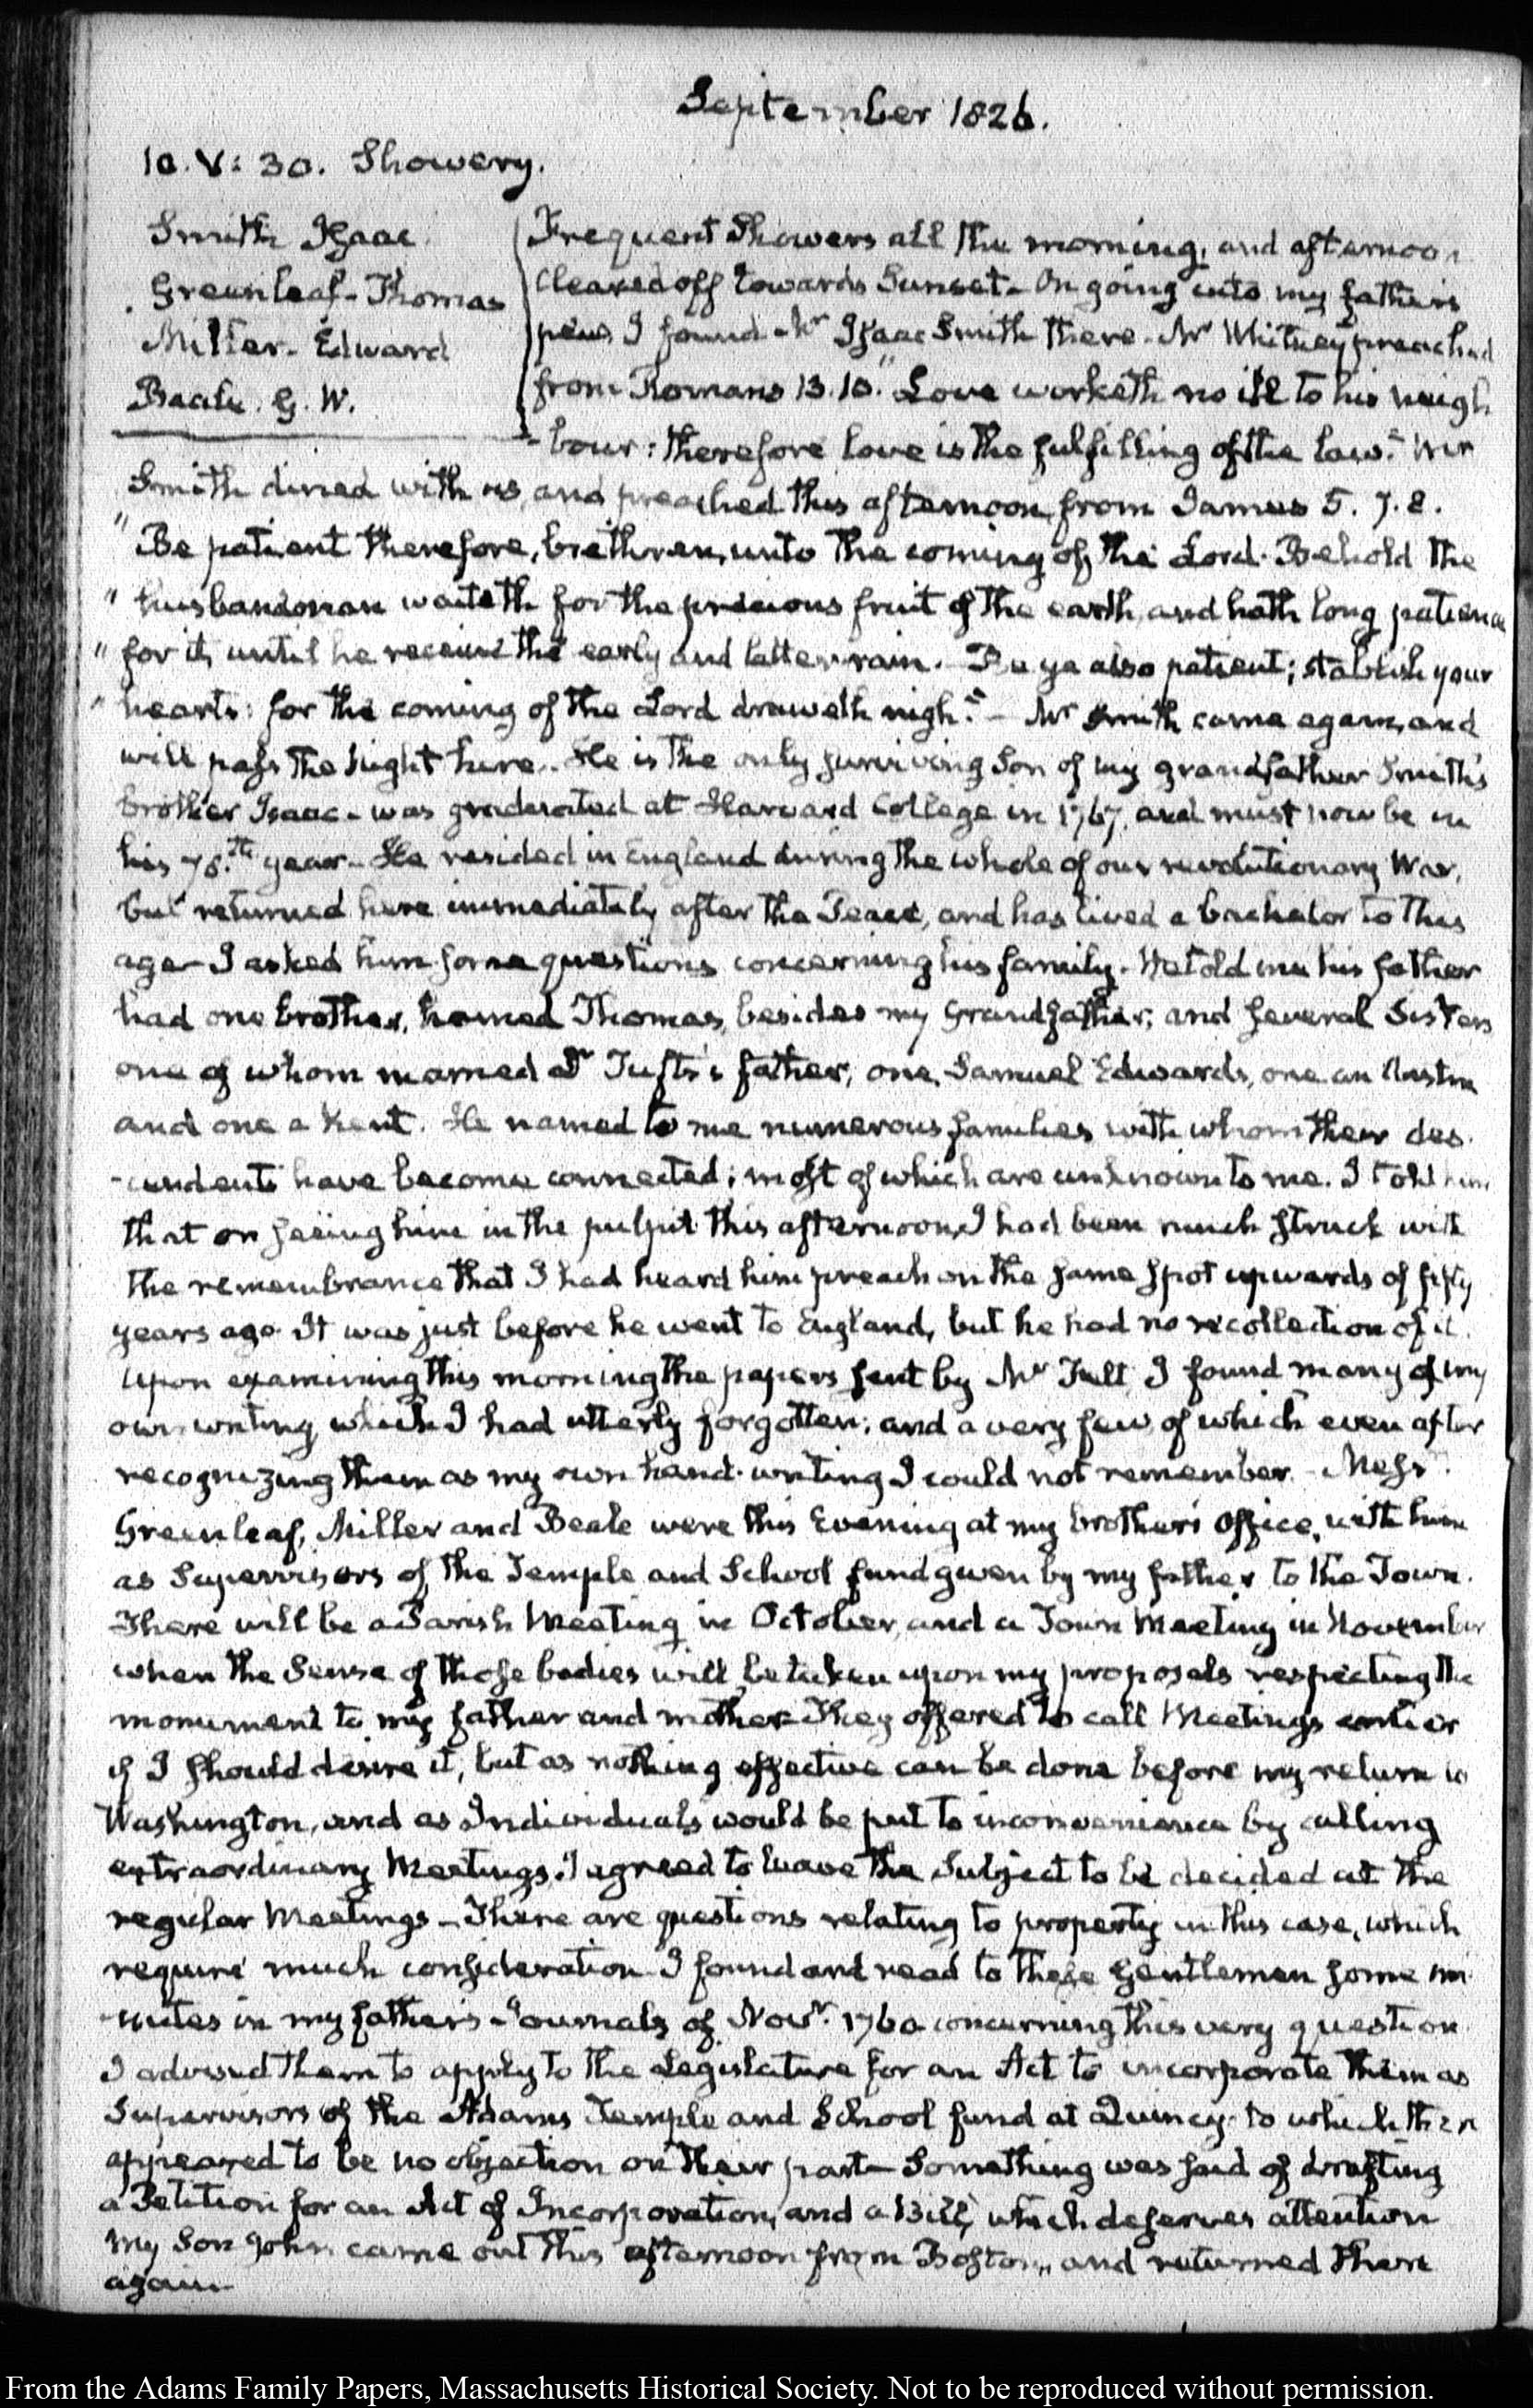 September 1826.
10. V: 30. Showery.
Smith Isaac
Greenleaf- Thomas
Miller- Edward
Beale. G. W.
Frequent Showers all the morning, and afternoon
cleared off towards Sunset- On going into my father's
pew I found Mr Isaac Smith there- Mr Whitney preached
from Romans 13.10. "Love worketh no ill to his neigh
-bour: therefore love is the fulfilling of the law." Mr
Smith dined with us, and preached this afternoon from James 5. 7.8.
"Be patient therefore, brethren, unto the coming of the Lord. Behold the
" husbandman waiteth for the precious fruit of the earth, and hath long patience
" for it, until he receive the early and latter rain. Be ye also patient; stablish your
" hearts: for the coming of the Lord draweth nigh."- Mr Smith came again, and
will pass the Night here.. He is the only surviving Son of my grandfather Smith's
brother Isaac- was graduated at Harvard College in 1767, and must now be in
his 78.th year- He resided in England during the whole of our revolutionary War,
but returned here immediately after the Peace, and has lived a bachelor to this
age- I asked him some questions concerning his family. He told me his father
had one brother, named Thomas, besides my Grandfather; and several Sisters
one of whom married Dr Tufts's father, one, Samuel Edwards, one an Austin
and one a Kent. He named to me numerous families with whom their des-
-cendents have become connected; most of which are unknown to me. I told him
that on seeing him in the pulpit this afternoon, I had been much struck with
the remembrance that I had heard him preach on the same spot upwards of fifty
years ago. It was just before he went to England, but he had no recollection of it.
Upon examining this morning the papers sent by Mr Felt I found many of my
own writing which I had utterly forgotten; and a very few, of which even after
recognizing them as my own hand-writing I could not remember- Messrs.
Greenleaf, Miller and Beale were this Evening at my brother's Office, with him
as Supervisors of the Temple and School fund given by my father to the Town.
There will be a Parish Meeting in October, and a Town Meeting in November
when the Sense of those bodies will be taken upon my proposals respecting the
monument to my father and mother- They offered to call Meetings earlier
if I should desire it, but as nothing effective can be done before my return to
Washington, and as Individuals would be put to inconvenience by calling
extraordinary Meetings, I agreed to leave the Subject to be decided at the
regular Meetings- There are questions relating to property in this case, which
require much consideration- I found and read to these Gentlemen some mi-
-nutes in my father's Journals of Novr. 1760 concerning this very question
I advised them to apply to the Legislature for an Act to incorporate them as
Supervisors of the Adams Temple and School fund at Quincy- to which there
appeared to be no objection on their part- Something was said of drafting
a Petition for an Act of Incorporation, and a Bill, which deserves attention
My Son John came out this afternoon from Boston, and returned there
again-
From the Adams Family Papers, Massachusetts Historical Society. Not to be reproduced without permission.